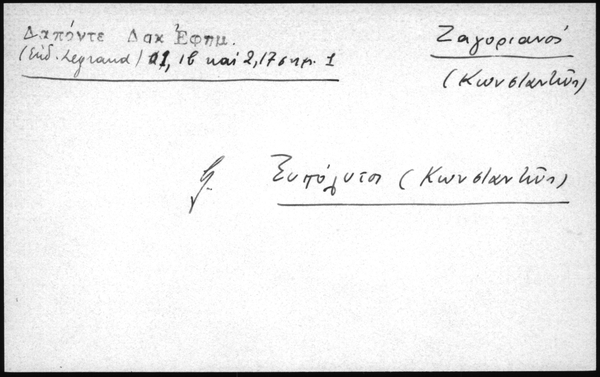 Δαπόντε Δακ Ἐφημ.
(Ἐκδ. Legrand) 1, ιβ καὶ 2, 17 σημ. 1
Ζαγοριανός
(Κωνσταντῖνος)
Ξυπόλυτοι (Κωνσταντῖνος)